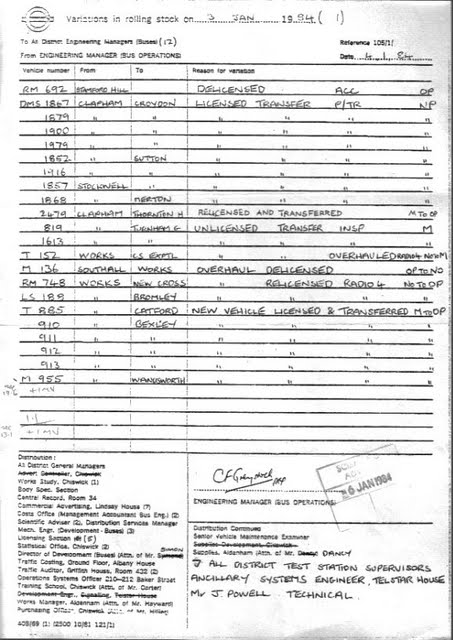 Variations in rolling stock on 3 JAN 1984 ( 1)
To All District Engineering Managers (Buses) (12)
Reference 105/1/
From ENGINEERING MANAGER (BUS OPERATIONS)
Date 4.1.84
Vehicle number From To Reason for variation
RM 692 STAMFORD HILL DELICENSED ACC OP
DMS 1867 CLAPHAM CROYDON LICENSED TRANSFER P/TR NP
1879 " " " " " "
1900 " " " " " "
1979 " " " " " "
1852 " SUTTON " " " "
1916 " " " " " "
1857 STOCKWELL " " " " "
1868 " MERTON " " " "
2479 CLAPHAM THORNTON H RELICENSED AND TRANSFERRED M TO OP
819 " TURNHAM G UNLICENSED TRANSFER INSP M
1613 " " " " " "
T 152 WORKS CS EXPTL " " OVERHAULED RADIO 4 NO TO M
M 136 SOUTHALL WORKS OVERHAUL DELICENSED OP TO NO
RM 748 WORKS NEW CROSS " RELICENSED RADIO 4 NO TO OP
LS 189 " BROMLEY " " " "
T 885 " CATFORD NEW VEHICLE LICENSED & TRANSFERRED M TO OP
910 " BEXLEY " " " "
911 " " " " " "
912 " " " " " "
913 " " " " " "
M 955 " WANDSWORTH " " " "
+1MV
+1MV
Distribution:
All District General Managers
Advert Controller, Chiswick
Works Study, Chiswick (1)
Body Spec. Section
Central Record, Room 34
Commercial Advertising, Lindsey House (7)
Costs Office (Management Accountant Bus Eng.) (2)
Scientific Adviser (2), Distribution Services Manager
Mech. Engr. (Development - Buses) (3)
Licensing Section (5)
Statistical Office, Chiswick (2)
Director of Development (Buses) (Attn. of Mr.
Traffic Costing, Ground Floor, Albany House
Traffic Auditor, Griffith House, Room 432 (2)
Operations Systems Officer 210-212 Baker Street
Training School, Chiswick (Attn. of Mr. Carter)
Development Engr., Signalling, Telstar House
Works Manager, Aldenham (Attn. of Mr. Hayward)
Purchasing Officer, Chiswick (Attn. of Mr. Miller)
409/69 (1) (2500 10/81 121/1)
ENGINEERING MANAGER (BUS OPERATIONS)
6 JAN 1984
Distribution Continued
Senior Vehicle Maintenance Examiner
Supplies Development, Chiswick
Supplies, Aldenham (Attn. of Mr. DANCY
7 ALL DISTRICT TEST STATION SUPERVISORS
ANCILLARY SYSTEMS ENGINEER, TELSTAR HOUSE
Mr J. POWELL. TECHNICAL.